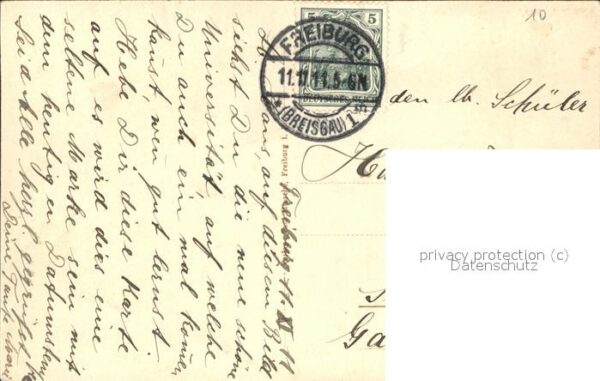 Freiburg 11. XI 11
So aus, auf diesem Bild
siehst Du die neue schöne
Universität, auf welche
Du auch einmal kommen
kannst, wenn gut lernst
Hebe Dir diese Karte
auf es wird dies eine
seltene Marke sein mit
dem heutigen Datumstemp
Seid Alle herzl. gegrüßt
Deine Tante Marie
5
FREIBURG
11.11.11.5-6N
*(BREISGAU)1
10
den lb. Schüler
Ga
privacy protection (c)
Datenschutz